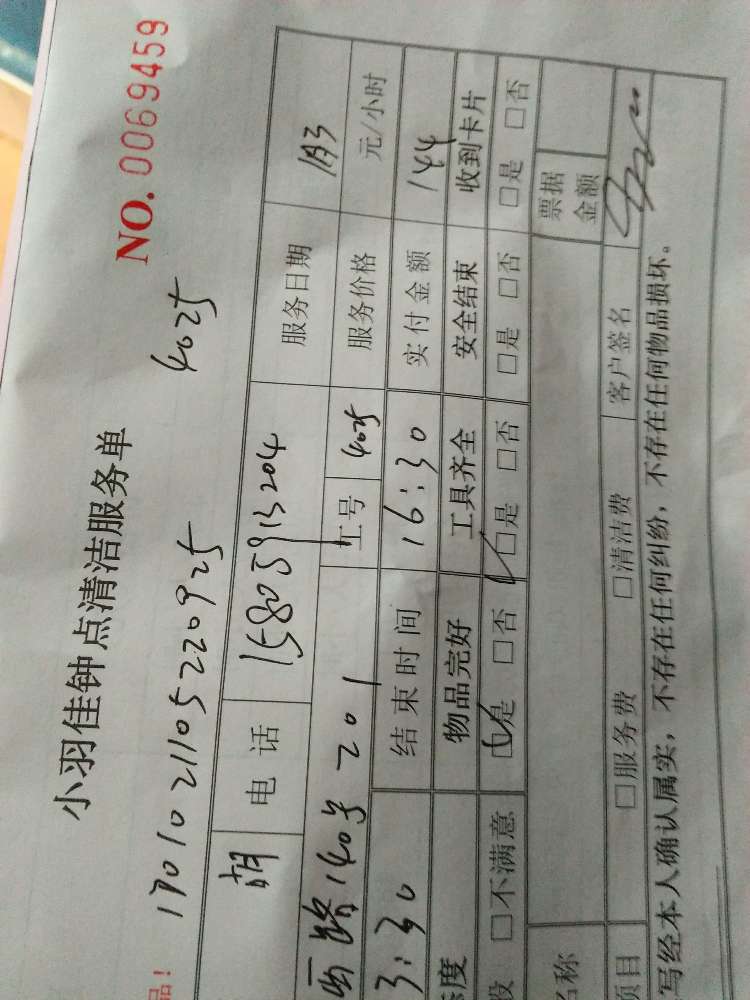 小羽佳钟点清洁服务单
NO. 0069459
品! 1701021105220925 4025
胡 电话 15805913204 服务日期 1月3
西路140号 201 工号 4025 服务价格 元/小时
3:30 结束时间 16:30 实付金额 144
态度 物品完好 工具齐全 安全结束 收到卡片
□不满意 □是 □否 □是 □否 □是 □否 □是 □否
名称 票据金额
项目 □服务费 □清洁费 客户签名
写经本人确认属实,不存在任何纠纷,不存在任何物品损坏。